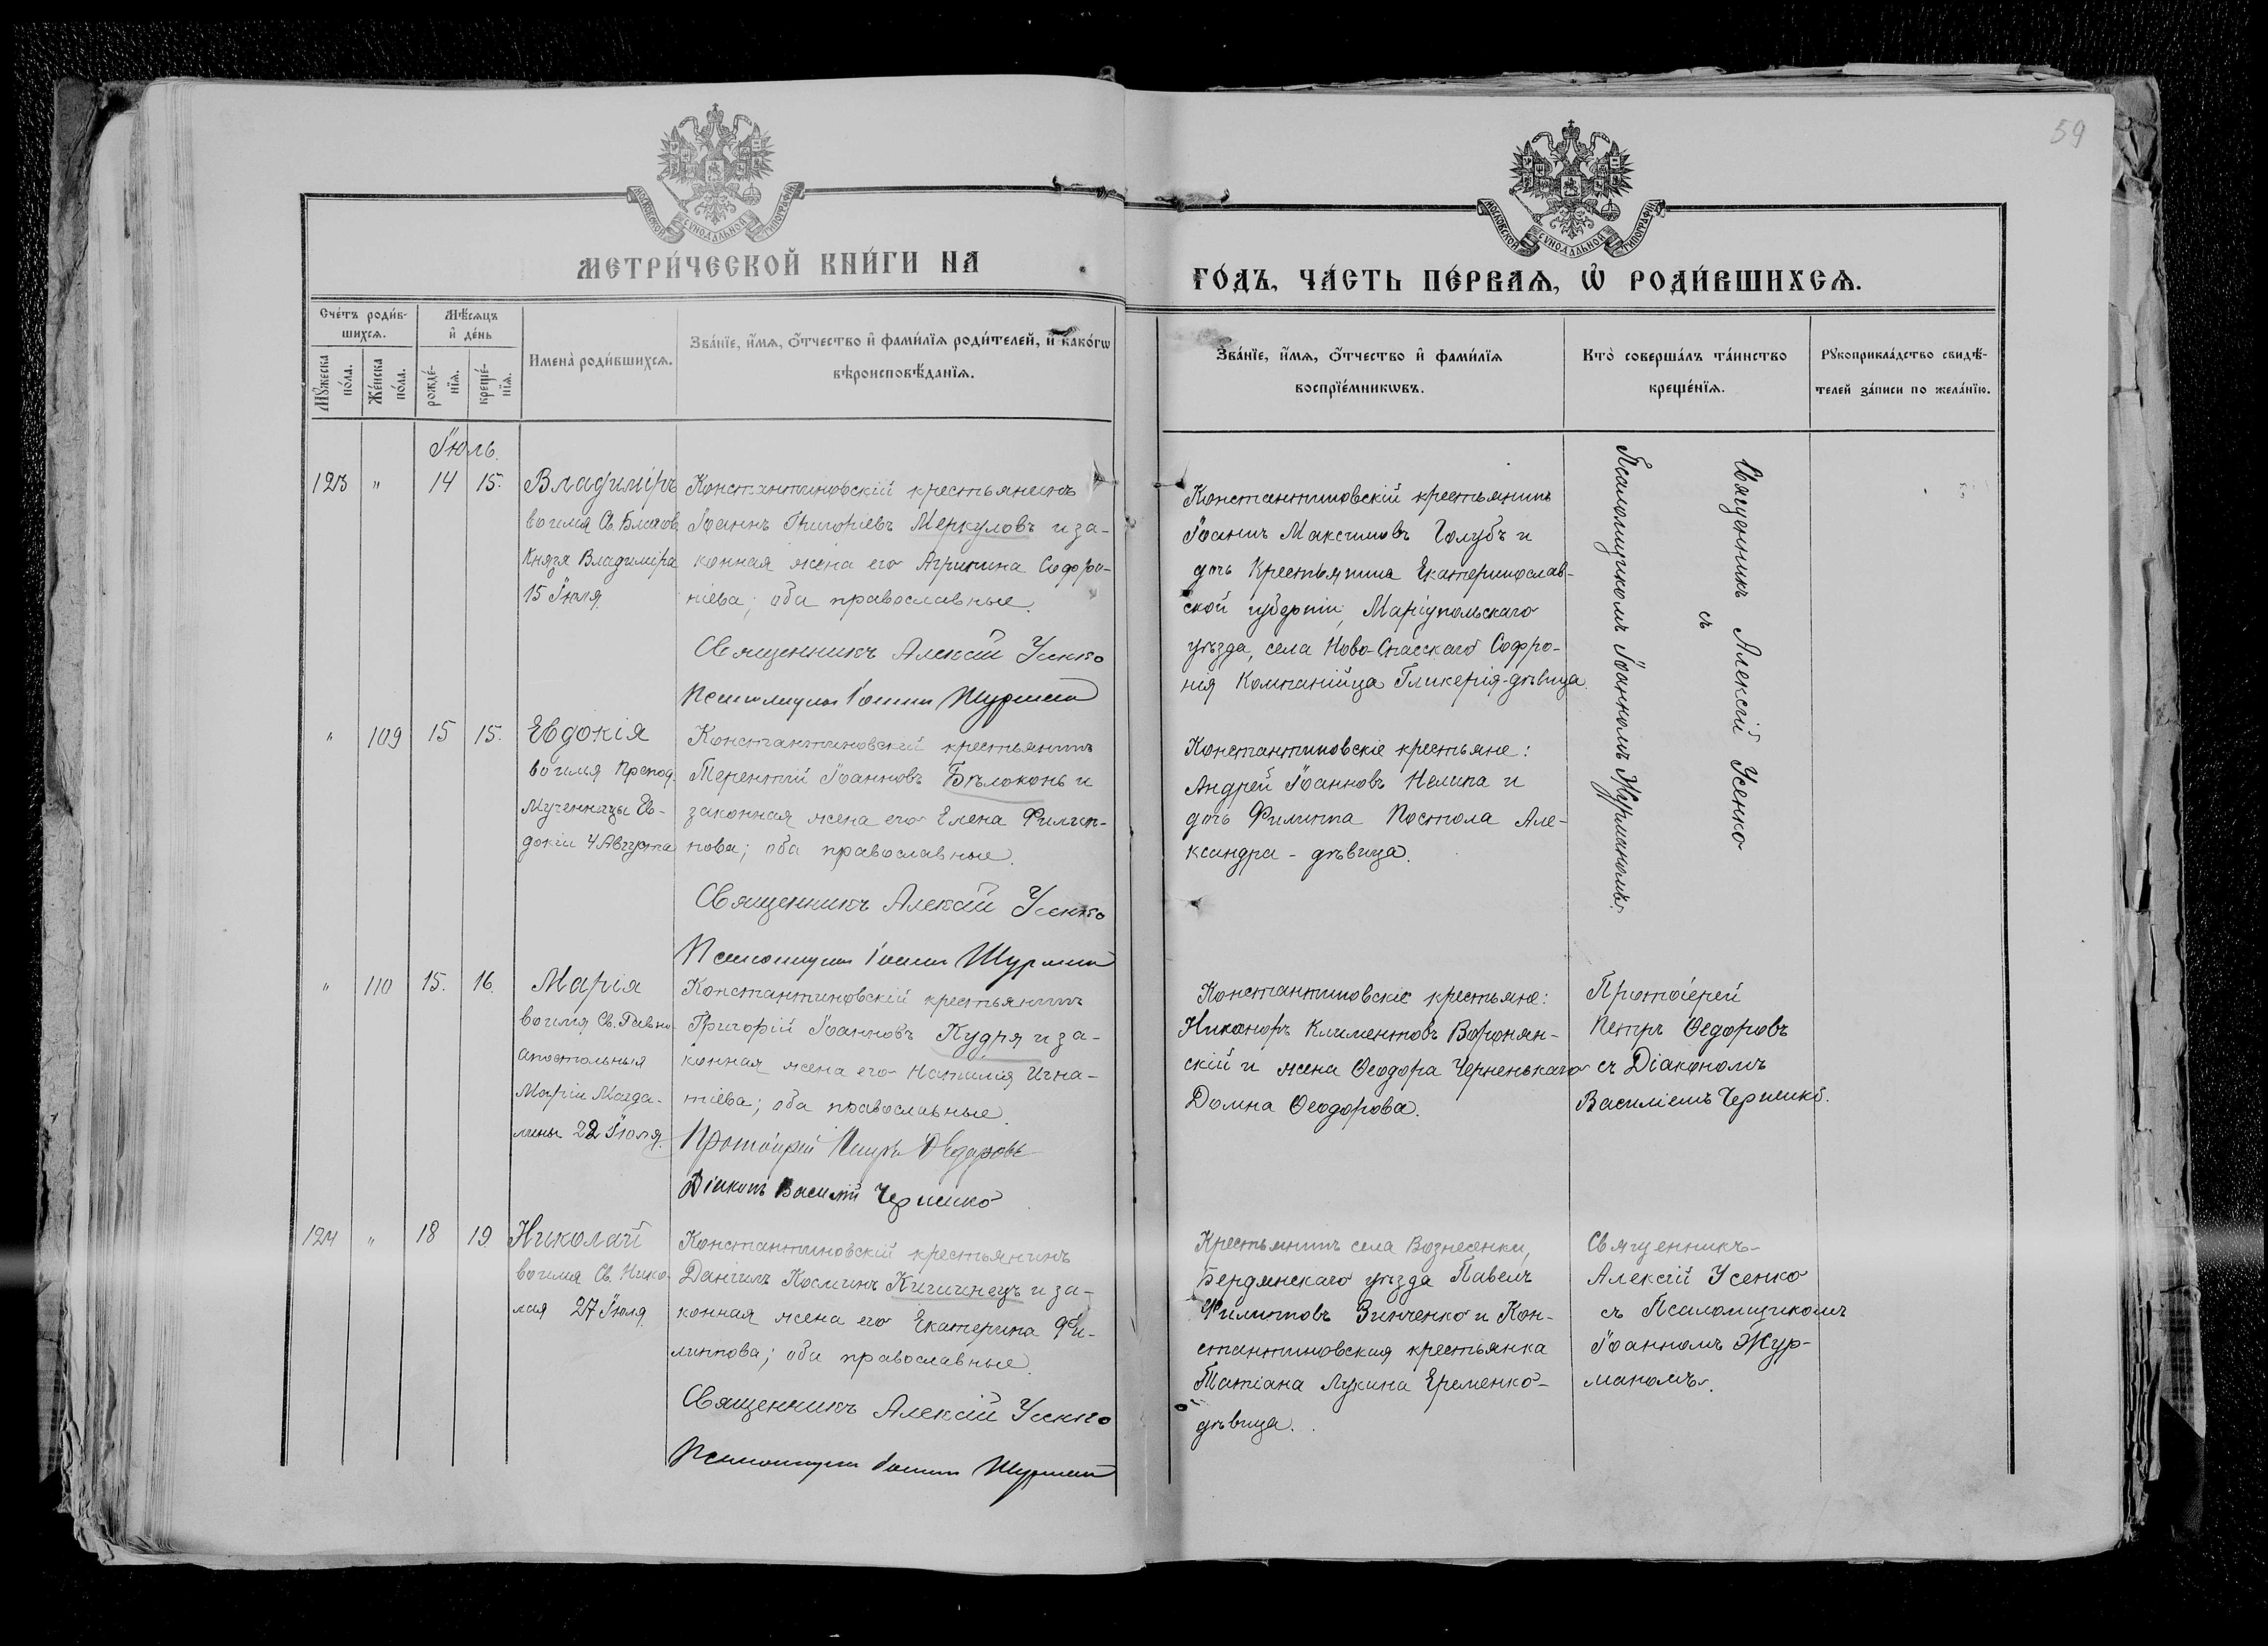 59
МОСКОВСКОЙ СѴНОДАЛЬНОЙ ТИПОГРАФІИ
МОСКОВСКОЙ СѴНОДАЛЬНОЙ ТИПОГРАФІИ
МЕТРИ́ЧЕСКОЙ КНИ́ГИ НА
ГО́ДЪ, ЧА́СТЬ ПЕ́РВАѦ, Ѡ РОДИ́ВШИХСѦ.
Сче́тъ роди́в-
шихсѧ.
Мꙋ́жеска
по́ла.
Же́нска
по́ла.
Мѣ́сѧцъ
и҆ де́нь
рожде́-
нїѧ.
креще́-
нїѧ.
Имена̀ роди́вшихсѧ.
Зва́нїе, и҆́мѧ, ѻ҆́тчество и҆ фами́лїѧ роди́телей, и҆ како́гѡ
вѣроисповѣ́данїѧ.
Зва́нїе, и҆́мѧ, ѻ҆́тчество и҆ фами́лїѧ
воспрїе́мникѡвъ.
Кто̀ соверша́лъ та́инство
креще́нїѧ.
Рꙋкоприкла́дство свидѣ́-
телей за́писи по жела́нїю.
Іюль.
123 " 14 15.
Владиміръ
во имя Св. Благов.
Князя Владиміра
15 Іюля
Константиновскій крестьянинъ
Іоаннъ Григоріевъ Меркуловъ и за-
конная жена его Агрипина Софро-
ніева; оба православные.
Священникъ Алексій Усенко
Псаломщикъ Іоаннъ Журманъ
Константиновскій крестьянинъ
Іоаннъ Максимовъ Голубъ и
дочь крестьянина Екатеринослав-
ской губерніи, Маріупольскаго
уѣзда, села Ново-Спасскаго Софро-
нія Компанійца Гликерія-дѣвица.
Священникъ Алексій Усенко
съ
Псаломщикомъ Іоанномъ Журманомъ.
" 109 15 15.
Евдокія
во имя Препод.
Мученицы Ев-
докіи 4 Августа
Константиновскій крестьянинъ
Терентій Іоанновъ Бѣлоконь и
законная жена его Елена Филип-
пова; оба православные.
Священникъ Алексій Усенко
Псаломщикъ Іоаннъ Журманъ
Константиновскіе крестьяне:
Андрей Іоанновъ Нелипа и
дочь Филиппа Постола Але-
ксандра - дѣвица.
" 110 15. 16.
Марія
во имя Св. Равно-
апостольныя
Маріи Магда-
лины 22 Іюля.
Константиновскій крестьянинъ
Григорій Іоанновъ Кудря и за-
конная жена его Наталія Игна-
тіева; оба православные.
Протоіерей Петръ Ѳедоровъ
Діаконъ Василій Черненко
Константиновскіе крестьяне:
Никаноръ Климентовъ Воронян-
скій и жена Ѳеодора Черненькаго
Домна Ѳеодорова.
Протоіерей
Петръ Ѳедоровъ
съ Діакономъ
Василіемъ Черненко.
124 " 18 19.
Николай
во имя Св. Нико-
лая 27 Іюля
Константиновскій крестьянинъ
Даніилъ Косминъ Кичинецъ и за-
конная жена его Екатерина Фи-
липпова; оба православные.
Священникъ Алексій Усенко
Псаломщикъ Іоаннъ Журманъ
Крестьянинъ села Вознесенки,
Бердянскаго уѣзда Павелъ
Филипповъ Зинченко и Кон-
стантиновская крестьянка
Татіана Лукина Еременко-
дѣвица.
Священникъ-
Алексій Усенко
съ Псаломщикомъ
Іоанномъ Жур-
маномъ.